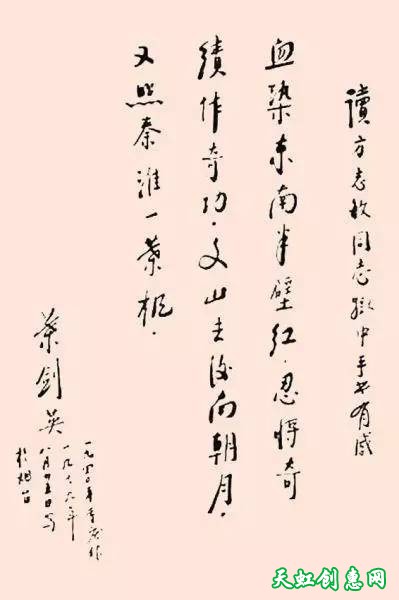 讀方志敏同志獄中手书有感
血染东南半壁红.忍将奇
績作奇功.文山去後南朝月.
又照秦淮一葉枫.
葉剑英
一九四〇年重庆作
一九六六年
八月五日写
於烟台
天虹创意网